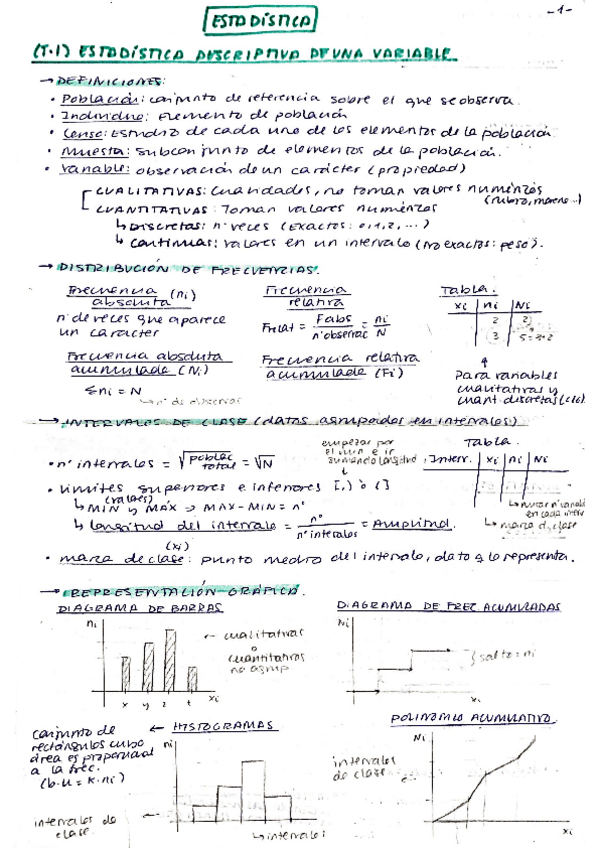 ESTADÍSTICA
-1-
(T.1) ESTADÍSTICA DESCRIPTIVA DE UNA VARIABLE
→ DEFINICIONES:
• Población: conjunto de referencia sobre el que se observa.
• Individuo: Elemento de población
• Censo: Estudio de cada uno de los elementos de la población.
• Muestra: subconjunto de elementos de la población.
• Variable: observación de un carácter (propiedad)
CUALITATIVAS: Cualidades, no toman valores numéricos
(rubio, moreno...)
CUANTITATIVAS: Toman valores numéricos
↳ Discretas: nº veces (exactos: 0,1,2,...)
↳ Continuas: valores en un intervalo (no exactos: peso).
→ DISTRIBUCIÓN DE FRECUENCIAS.
Frecuencia absoluta (ni)
nº de veces que aparece
un carácter
Frecuencia relativa
Frelat = Fabs / nº observac = ni / N
Tabla.
xi | ni | Ni
2 2
3 5=3+2
Para variables
cualitativas y
cuant. discretas
Frecuencia absoluta
acumulada (Ni)
Σni = N
Frecuencia relativa
acumulada (Fi)
→ INTERVALOS DE CLASE (datos agrupados en intervalos)
• nº intervalos = √poblac total = √N
empezar por
el min e ir
sumando longitud
Tabla.
Interv. | xi | ni | Ni
↳ marca d clase
• Límites superiores e inferiores [,) ò (]
(valores)
↳ MIN y MÁX ⇒ MAX-MIN = nº
↳ Longitud del intervalo = nº / nº intervalos = Amplitud.
(xi)
• marca de clase: punto medio del intervalo, dato q lo representa.
→ REPRESENTACIÓN GRÁFICA.
DIAGRAMA DE BARRAS
ni
x y z t xi
← cualitativas
o
cuantitativas
no agrup
DIAGRAMA DE FREC. ACUMULADAS
Ni
salto = ni
xi
conjunto de
rectángulos cuyo
área es proporcional
a la frec.
← HISTOGRAMAS
ni
intervalos de
clase
↳ intervalos
POLINOMIO ACUMULATIVO.
Ni
intervalos
de clase
xi